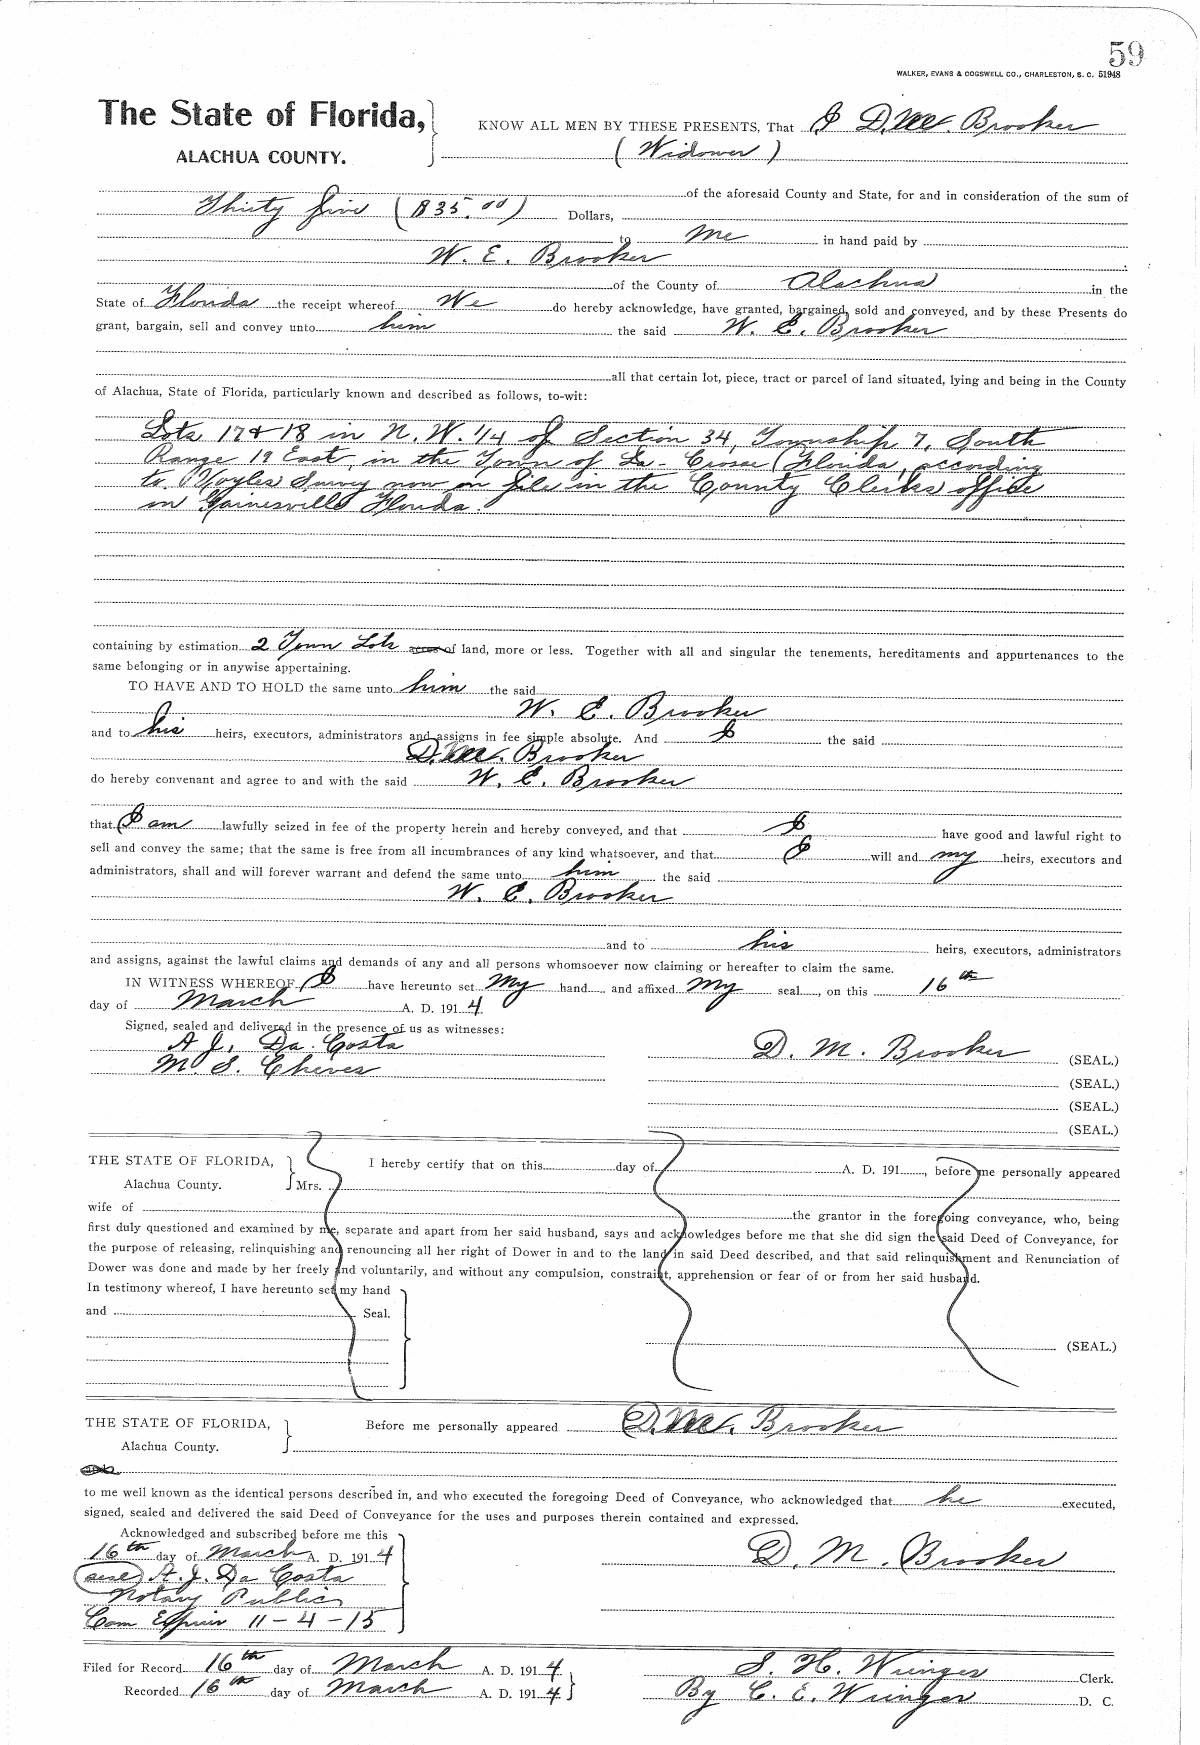 59
WALKER, EVANS & COGSWELL CO., CHARLESTON, S. C. 51948
The State of Florida,
ALACHUA COUNTY.
KNOW ALL MEN BY THESE PRESENTS, That I D. M. Brooker
(Widower)
of the aforesaid County and State, for and in consideration of the sum of
Thirty five ($35.00) Dollars,
to me in hand paid by
W. E. Brooker
of the County of Alachua in the
State of Florida the receipt whereof We do hereby acknowledge, have granted, bargained, sold and conveyed, and by these Presents do
grant, bargain, sell and convey unto him the said W. E. Brooker
all that certain lot, piece, tract or parcel of land situated, lying and being in the County
of Alachua, State of Florida, particularly known and described as follows, to-wit:
Lots 17 & 18 in N. W. 1/4 of Section 34, Township 7, South
Range 19 East, in the Town of La-Crosse Florida, according
to Voyles Survey now on file in the County Clerks office
in Gainesville Florida.
containing by estimation 2 Town Lots acres of land, more or less. Together with all and singular the tenements, hereditaments and appurtenances to the
same belonging or in anywise appertaining.
TO HAVE AND TO HOLD the same unto him the said
W. E. Brooker
and to his heirs, executors, administrators and assigns in fee simple absolute. And I the said
D. M. Brooker
do hereby convenant and agree to and with the said W. E. Brooker
that I am lawfully seized in fee of the property herein and hereby conveyed, and that I have good and lawful right to
sell and convey the same; that the same is free from all incumbrances of any kind whatsoever, and that I will and my heirs, executors and
administrators, shall and will forever warrant and defend the same unto him the said
W. E. Brooker
and to his heirs, executors, administrators
and assigns, against the lawful claims and demands of any and all persons whomsoever now claiming or hereafter to claim the same.
IN WITNESS WHEREOF, I have hereunto set My hand and affixed My seal, on this 16th
day of March A. D. 1914
Signed, sealed and delivered in the presence of us as witnesses:
A J. Da Costa
M. S. Cheves
D. M. Brooker (SEAL.)
(SEAL.)
(SEAL.)
(SEAL.)
THE STATE OF FLORIDA,
Alachua County.
I hereby certify that on this day of A. D. 191, before me personally appeared
Mrs.
wife of the grantor in the foregoing conveyance, who, being
first duly questioned and examined by me, separate and apart from her said husband, says and acknowledges before me that she did sign the said Deed of Conveyance, for
the purpose of releasing, relinquishing and renouncing all her right of Dower in and to the land in said Deed described, and that said relinquishment and Renunciation of
Dower was done and made by her freely and voluntarily, and without any compulsion, constraint, apprehension or fear of or from her said husband.
In testimony whereof, I have hereunto set my hand
and Seal.
(SEAL.)
THE STATE OF FLORIDA,
Alachua County.
Before me personally appeared D. M. Brooker
to me well known as the identical persons described in, and who executed the foregoing Deed of Conveyance, who acknowledged that he executed,
signed, sealed and delivered the said Deed of Conveyance for the uses and purposes therein contained and expressed.
Acknowledged and subscribed before me this
16th day of March A. D. 1914
(seal) A. J. Da Costa
Notary Public
Com Expires 11-4-15
D. M. Brooker
Filed for Record 16th day of March A. D. 1914
Recorded 16th day of March A. D. 1914
S. H. Wienges Clerk.
By C. E. Wienges D. C.